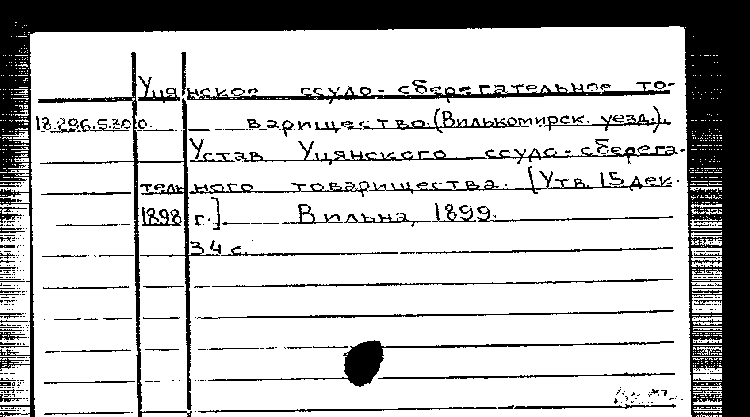 Уцянское ссудо-сберегательное то-
18.296.5.300. варищество. (Вилькомирск. уезд.).
Устав Уцянского ссудо-сберега-
тельного товарищества. [Утв. 15 дек.
1898 г.]. Вильна, 1899.
34 с.